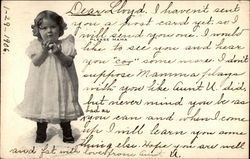 1-29-1906
Dear Lloyd. I havent sent
you a post card yet so I
will send you one. I would
PLEASE MAMA
like to see you and hear
you "coo" some more. I don't
suppose Mamma plays
with you like Aunt U. did,
but never mind you be as
good as
you can and when I come
up I will learn you some
thing else. Hope you are well
and fat with love from Aunt U.